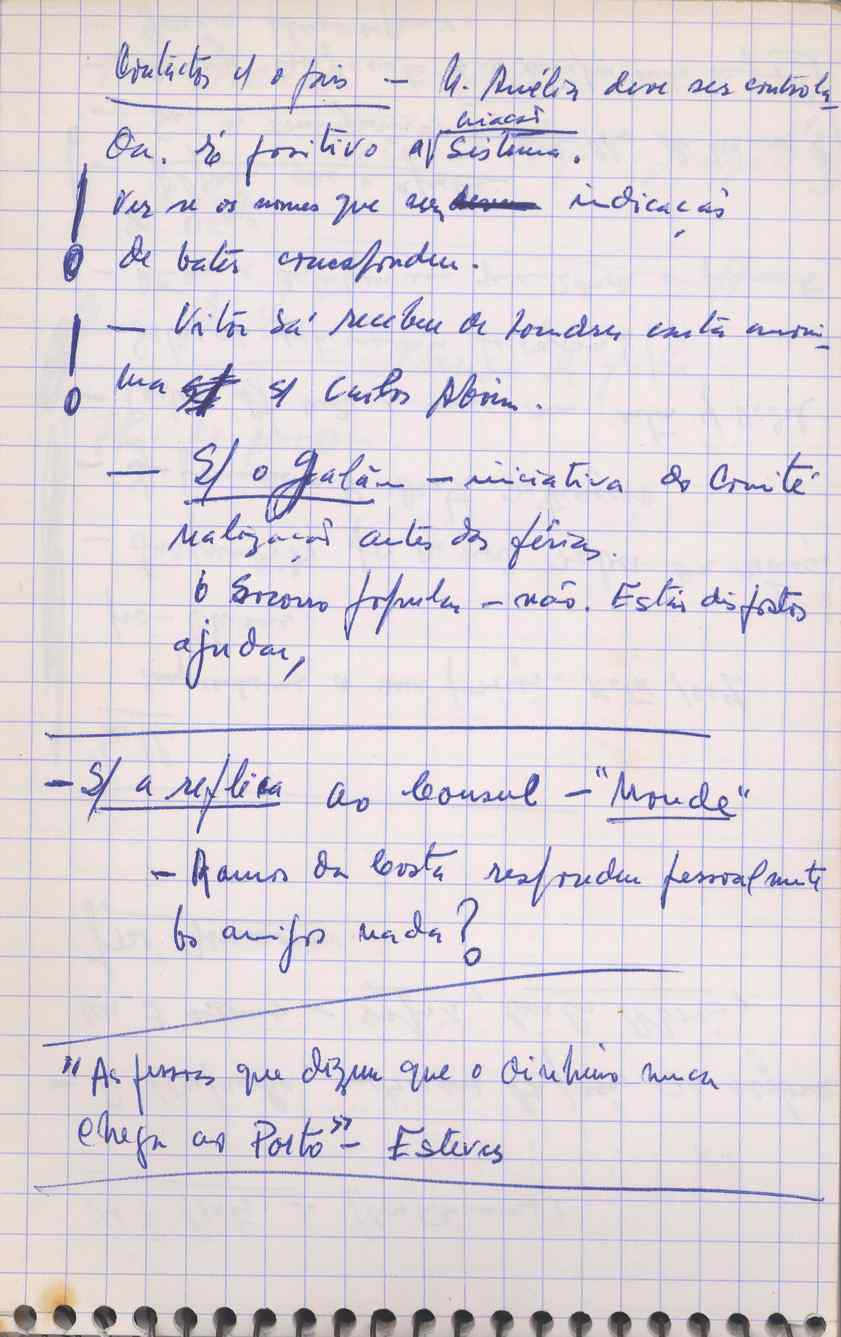 Contactos c/ o país — M. Amélia deve ser controla-
da. Só positivo a criação
sistema.
Ver se os nomes que indicação
de batem correspondem.
— Vitor Sá recebeu de Londres carta anoni-
ma s/ Carlos Aboim.
— S/ o Galão — iniciativa do Comité
realização antes das férias.
o Socorro popular — não. Estão dispostos
ajudar,
— S/ a réplica ao Consul — "Monde"
— Ramos da Costa respondeu pessoalmente
Os amigos nada?
"As pessoas que dizem que o dinheiro nunca
chega ao Porto" — Esteves